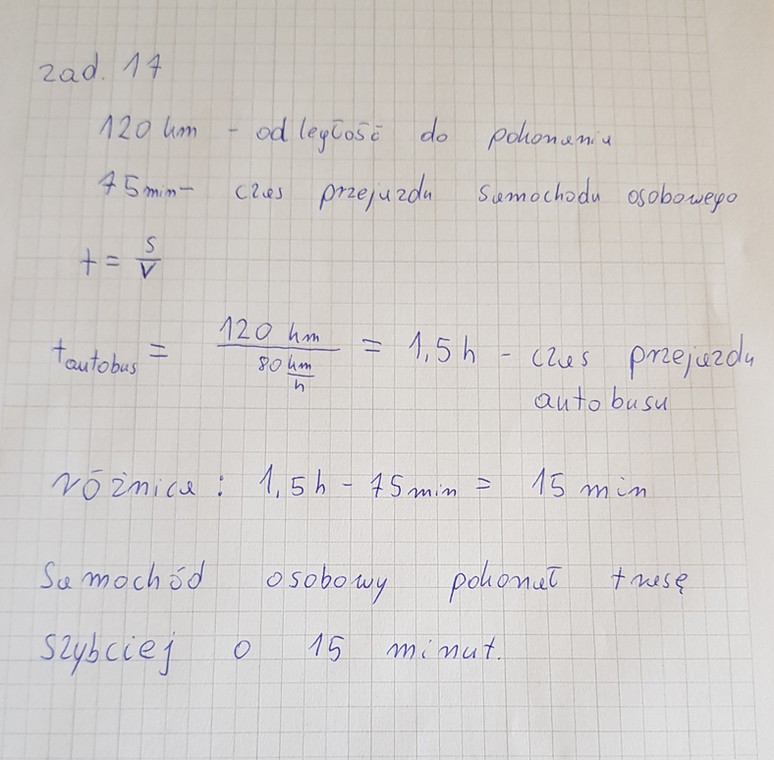 zad. 17
120 km - odległość do pokonania
75 min - czas przejazdu samochodu osobowego
t = s/v
t autobus = 120 km / 80 km/h = 1,5 h - czas przejazdu
autobusu
różnica : 1,5 h - 75 min = 15 min
Samochód osobowy pokonał trasę
szybciej o 15 minut.